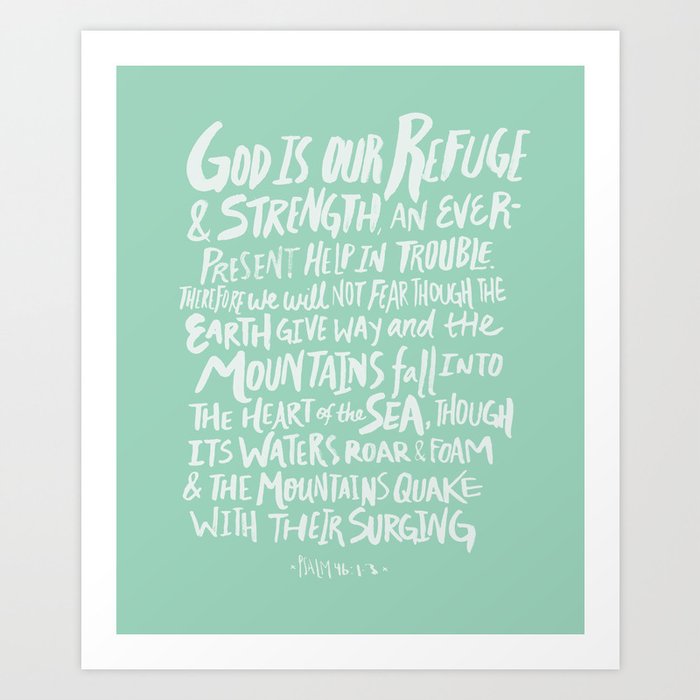 GOD IS OUR REFUGE
& STRENGTH, AN EVER-
PRESENT HELP IN TROUBLE.
THEREFORE we will NOT FEAR THOUGH THE
EARTH GIVE WAY and the
MOUNTAINS fall INTO
THE HEART of the SEA, THOUGH
ITS WATERS ROAR & FOAM
& THE MOUNTAINS QUAKE
WITH THEIR SURGING
* PSALM 46:1-3 *